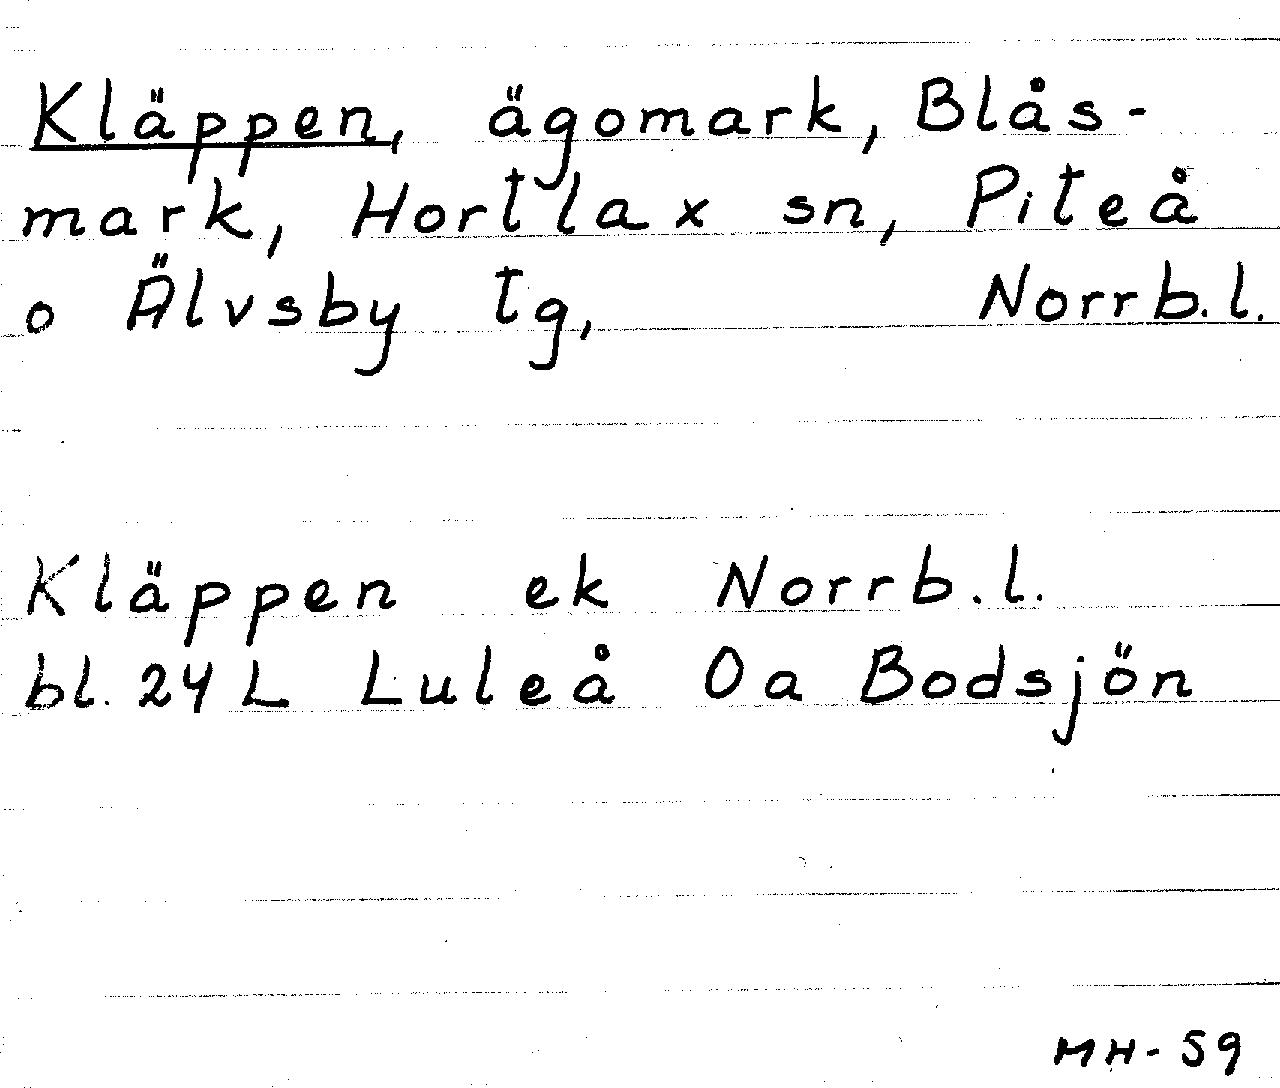 Kläppen, ägomark, Blås-
mark, Hortlax sn, Piteå
o Älvsby tg, Norrb.l.
Kläppen ek Norrb.l.
bl. 24 L Luleå Oa Bodsjön
MH-59